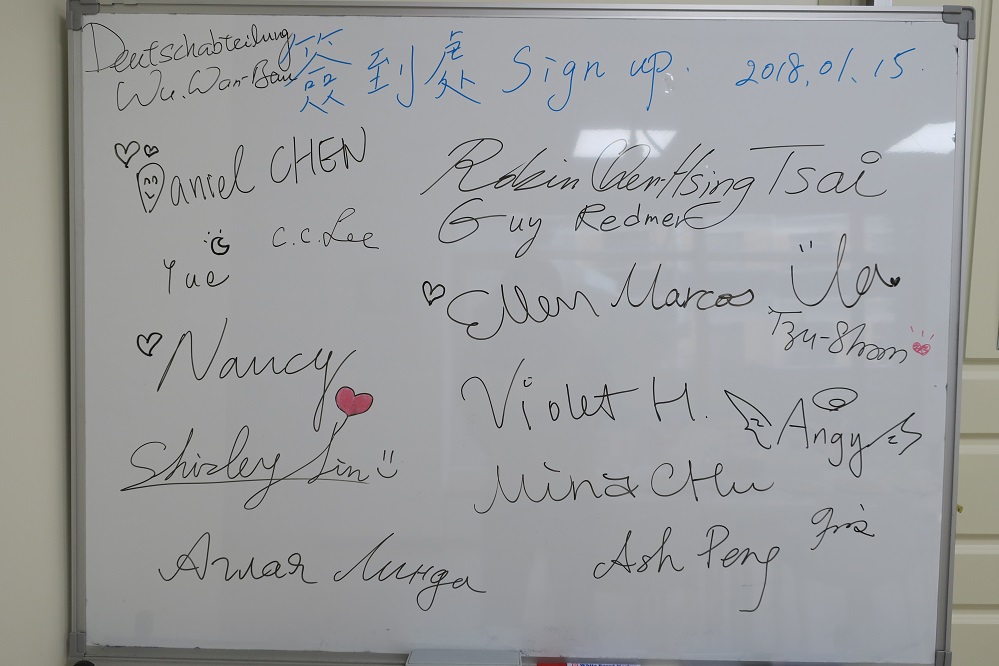 Deutschabteilung
Wu. Wan-Bau
簽到處 Sign up. 2018.01.15.
Daniel CHEN
Robin Chen-Hsing Tsai
C.C. Lee
Guy Redmer
Yue
Ellen Marcos
Tzu-Shan
Nancy
Violet H.
Angy
Shirley Lin
Mina CHu
Ash Peng